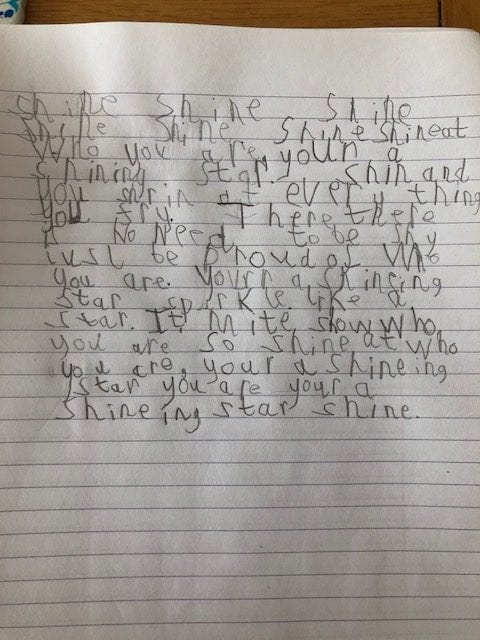 Shine Shine Shine
Shine Shine Shine Shine at
Who you are, youn a
shining star. Shin and
you shrin at every thing
you try. There there
is No Need to be shy
just be proud of Who
you are. yourr a shineing
star sparkle like a
star. It mite show who
you are so shine at who
you are, your a shineing
star you are your a
shineing star shine.